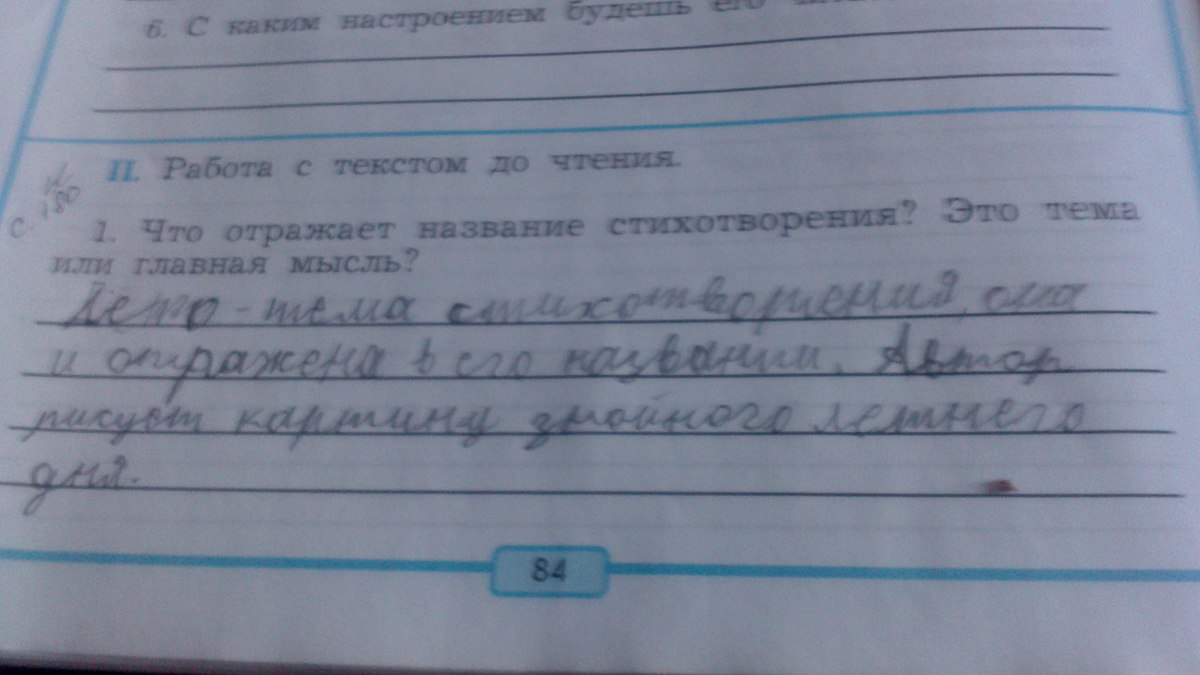 6. С каким настроением будешь его
II. Работа с текстом до чтения.
с 180
1. Что отражает название стихотворения? Это тема
или главная мысль?
Лето - тема стихотворения, она
и отражена в его названии. Автор
рисует картину знойного летнего
дня.
84